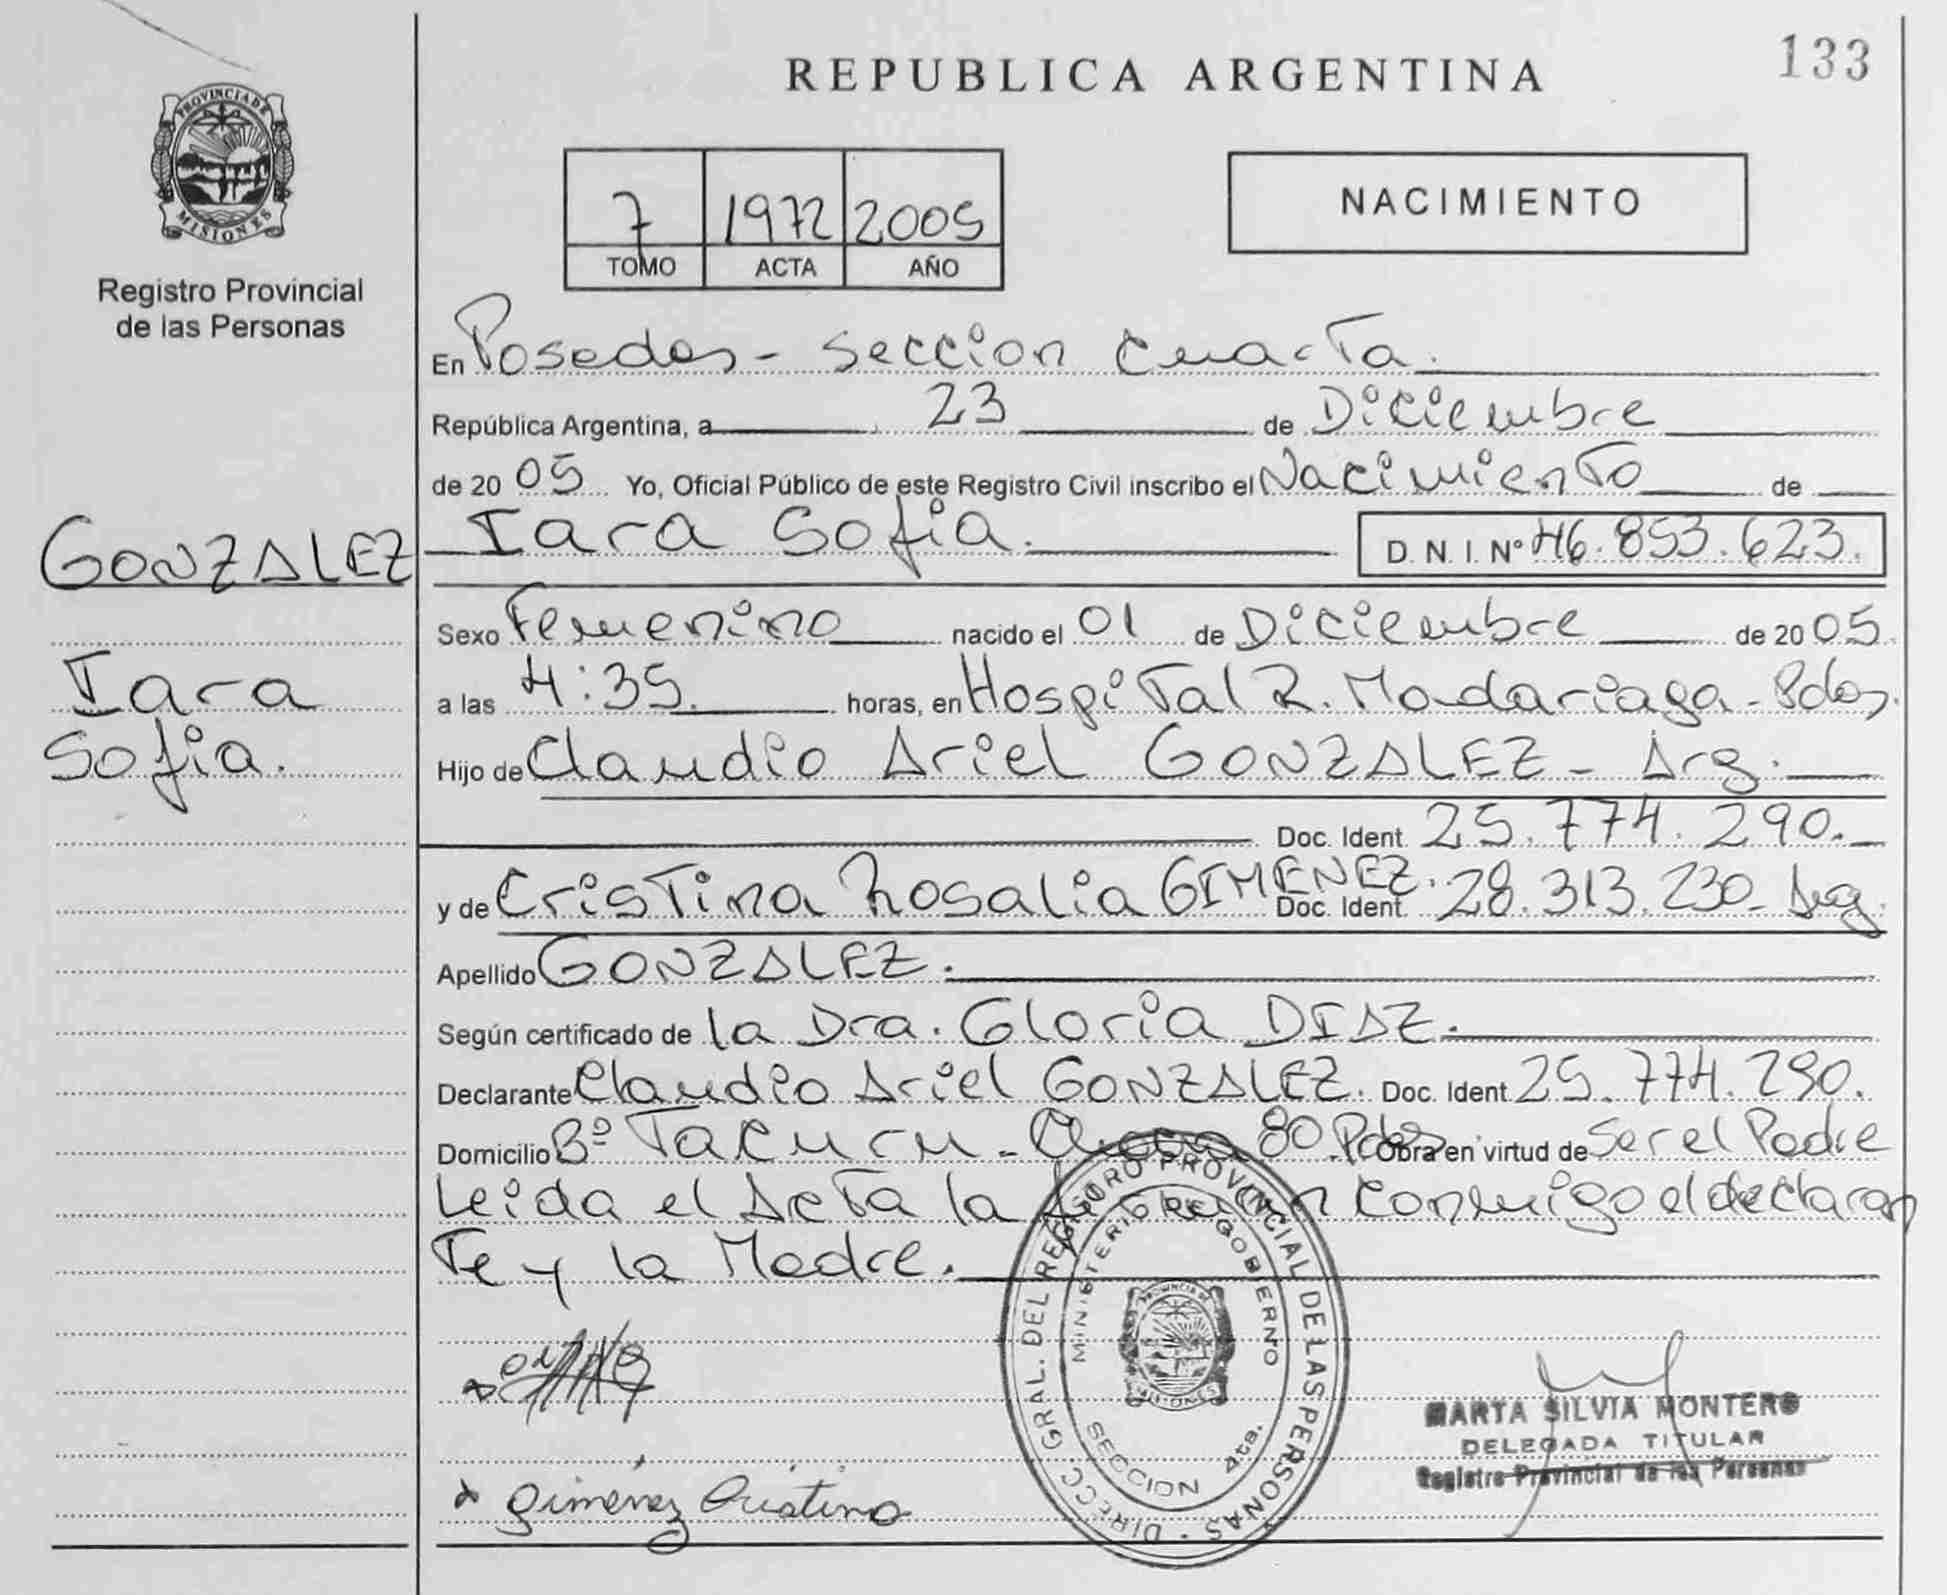 133
REPUBLICA ARGENTINA
PROVINCIA DE
MISIONES
Registro Provincial
de las Personas
7 1972 2005
TOMO ACTA AÑO
NACIMIENTO
En Posadas - Seccion Cuarta.
República Argentina, a 23 de Diciembre
de 20 05 Yo, Oficial Público de este Registro Civil inscribo el Nacimiento de
GONZALEZ
Iara Sofia. D. N. I. Nº 46.853.623.
Sexo Femenino nacido el 01 de Diciembre de 20 05.
Iara
Sofia.
a las 4:35. horas, en Hospital R. Madariaga - Pdas.
Hijo de Claudio Ariel GONZALEZ - Arg.
Doc. Ident. 25.774.290.
y de Cristina Rosalia GIMENEZ. Doc. Ident. 28.313.230 - Arg.
Apellido GONZALEZ.
Según certificado de la Dra. Gloria DIAZ.
Declarante Claudio Ariel GONZALEZ. Doc. Ident. 25.774.290.
Domicilio Bº Tacuru - 80. Pdas Obra en virtud de Ser el Padre
Leida el Acta la conmigo el declaran
te y la Madre.
DIRECC. GRAL. DEL REGISTRO PROVINCIAL DE LAS PERSONAS
MINISTERIO DE GOBIERNO
PROVINCIA DE
MISIONES
SECCION 4ta.
MARTA SILVIA MONTERO
DELEGADA TITULAR
Registro Provincial de las Personas
Giménez Cristina